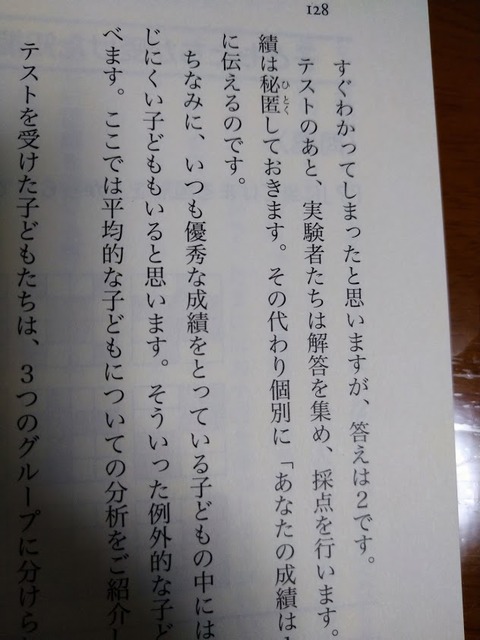 128
すぐわかってしまったと思いますが、答えは2です。
テストのあと、実験者たちは解答を集め、採点を行います。
績は秘匿しておきます。その代わり個別に「あなたの成績は
ひとく
に伝えるのです。
ちなみに、いつも優秀な成績をとっている子どもの中には
じにくい子どももいると思います。そういった例外的な子ど
べます。ここでは平均的な子どもについての分析をご紹介し
テストを受けた子どもたちは、3つのグループに分けら